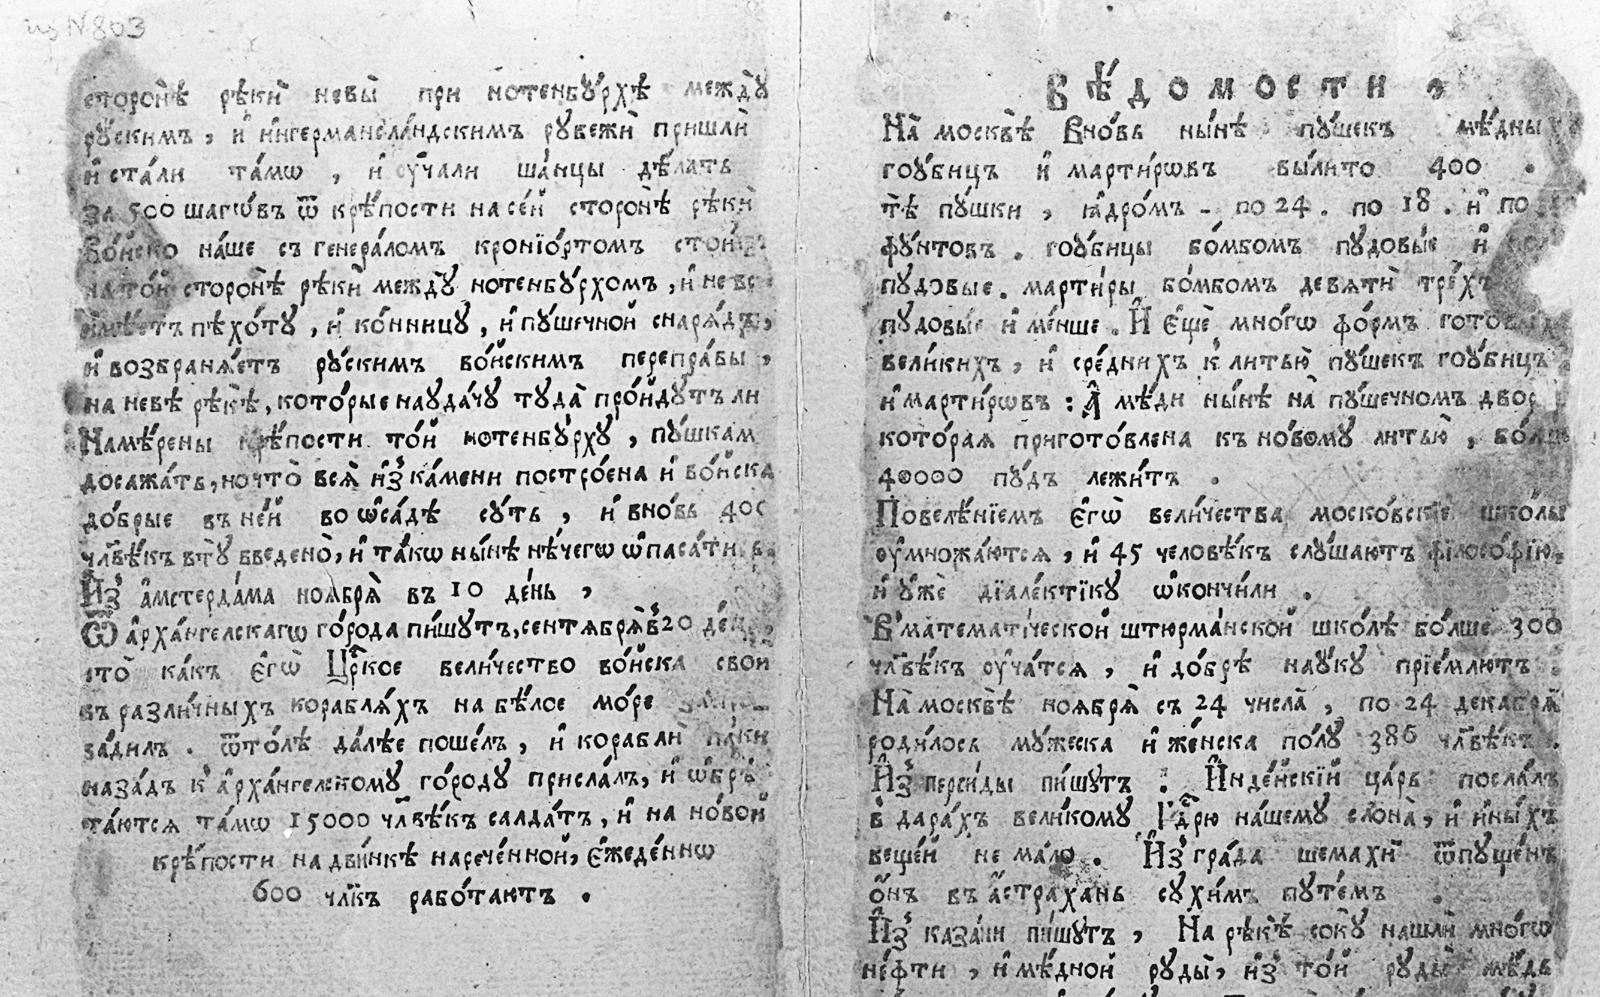 из N 803
сторонѣ̀ рѣкѝ невы̀ при нотенбу́рхѣ междꙋ̀
рꙋ́скимъ, и҆ и҆нгерманѣла́ндскимъ рꙋбежѝ пришлѝ
и҆ ста́ли та́мѡ, и҆ ᲂу҆чали ша́нцы дѣ́лать
за 500 шагѡ́въ ѿ крѣ́пости на се́й сторонѣ̀ рѣкѝ
Во́йско на́ше съ генера́ломъ кроніо́ртомъ
на то́й сторонѣ̀ рѣкѝ междꙋ̀ нотенбꙋ́рхомъ, и҆ не
имѣ́етъ пѣхо́тꙋ, и҆ ко́нницꙋ, и҆ пꙋ́шечной снарѧ́дъ,
и҆ возбранѧ́етъ рꙋ́скимъ во́йскимъ перепра́вы,
на невѣ̀ рѣкѣ̀, кото́рые наꙋда́чꙋ тꙋда̀ про́йдꙋтъ ли
Намѣ́рены крѣ́пости то́й нотенбꙋ́рхꙋ, пꙋ́шкам
досажа́ть, но что̀ всѧ̀ и҆з̾ ка́мени постро́ена и҆ во́йска
до́брые въ не́й во ѡ҆са́дѣ сꙋ́ть, и҆ вно́вь 400
члв҃ѣкъ в тꙋ̀ введено̀, и҆ та́кѡ ны́нѣ не́чегѡ ѡ҆паса́ти
И҆з̾ а҆мстерда́ма ноѧбрѧ̀ въ 10 де́нь,
Ѿ а҆рха́нгелскагѡ го́рода пи́шꙋтъ, сентѧбрѧ̀ в̾ 20 де́
что̀ ка́къ є҆гѡ̀ Црⷭ҇кое вели́чество во́йска свои̑
въ разли́чныхъ кораблѧ́хъ на бѣ́лое мо́ре
за́дилъ. ѿто́лѣ да́лѣе поше́лъ, и҆ кораблѝ па́ки
наза́дъ к̾ а҆рха́нгелскомꙋ го́родꙋ присла́лъ, и҆ ѡ҆брѣ
та́ютсѧ та́мѡ 15000 члв҃ѣкъ салда́тъ, и҆ на но́вой
крѣ́пости на дви́нкѣ нарече́нной, є҆жеде́ннѡ
600 члк҃ъ рабо́таютъ.
вѣ́домости,
На̀ москвѣ̀ Вно́вь ны́нѣ пꙋ́шекъ мѣ́дны
гоꙋ́бицъ и҆ марти́рѡвъ вы́лито 400.
тѣ̀ пꙋ́шки, ꙗ҆дро́мъ - по 24. по 18. и҆ по
фꙋ́нтовъ. гоꙋ́бицы бо́мбомъ пꙋдовы́е и҆
пꙋдовы́е. марти́ры бо́мбомъ девятѝ тре́хъ
пꙋдовы́е и҆ ме́нше. И҆ є҆щѐ мно́гѡ фо́рмъ
вели́кихъ, и҆ сре́днихъ к̾ литью̀ пꙋ́шекъ гоꙋ́бицъ
и҆ марти́рѡвъ: А҆ мѣ́ди ны́нѣ на̀ пꙋ́шечномъ двор
кото́рая пригото́влена къ но́вомꙋ литью̀, бо́лше
40000 пꙋ́дъ лежи́тъ.
Повелѣ́ніемъ є҆гѡ̀ вели́чества моско́вскіе шко́лы
ᲂу҆множа́ютсѧ, и҆ 45 человѣ́къ слꙋ́шаютъ філосо́фію,
и҆ ᲂу҆жѐ діале́ктікꙋ ѡ҆кончи́ли.
В̾ математи́ческой штюрма́нской шко́лѣ бо́лше 300
члв҃ѣкъ ᲂу҆ча́тсѧ, и҆ до́брѣ наꙋ́кꙋ пріе́млютъ.
На̀ москвѣ̀ ноѧбрѧ̀ съ 24 числа̀, по 24 декабрѧ̀
роди́лось мꙋ́жеска и҆ же́нска по́лꙋ 386 члв҃ѣкъ.
И҆з̾ перси́ды пи́шꙋтъ: И҆нде́йскій ца́рь посла́лъ
в̾ дара́хъ вели́комꙋ Гдⷭ҇рю на́шемꙋ слона̀, и҆ и҆ны́хъ
веще́й не ма́ло. И҆з̾ гра́да шемахѝ ѿпꙋ́щенъ
о҆́нъ въ а҆́страхань сꙋхи́мъ пꙋте́мъ
И҆з̾ каза́ни пи́шꙋтъ, На рѣкѣ̀ сокꙋ̀ нашлѝ мно́гѡ
не́фти, и҆ мѣ́дной рꙋды̀, и҆з̾ то́й рꙋды̀ мѣ́дь